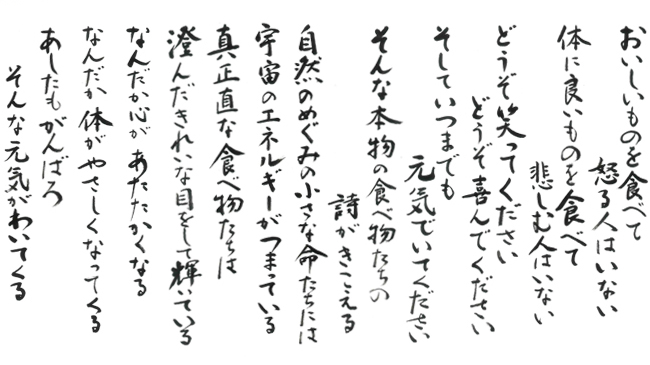 おいしいものを食べて
怒る人はいない
体に良いものを食べて
悲しむ人はいない
どうぞ笑ってください
どうぞ喜んでください
そしていつまでも
元気でいてください
そんな本物の食べ物たちの
詩がきこえる
自然のめぐみの小さな命たちには
宇宙のエネルギーがつまっている
真正直な食べ物たちは
澄んだきれいな目をして輝いている
なんだか心があたたかくなる
なんだか体がやさしくなってくる
あしたもがんばろ
そんな元気がわいてくる